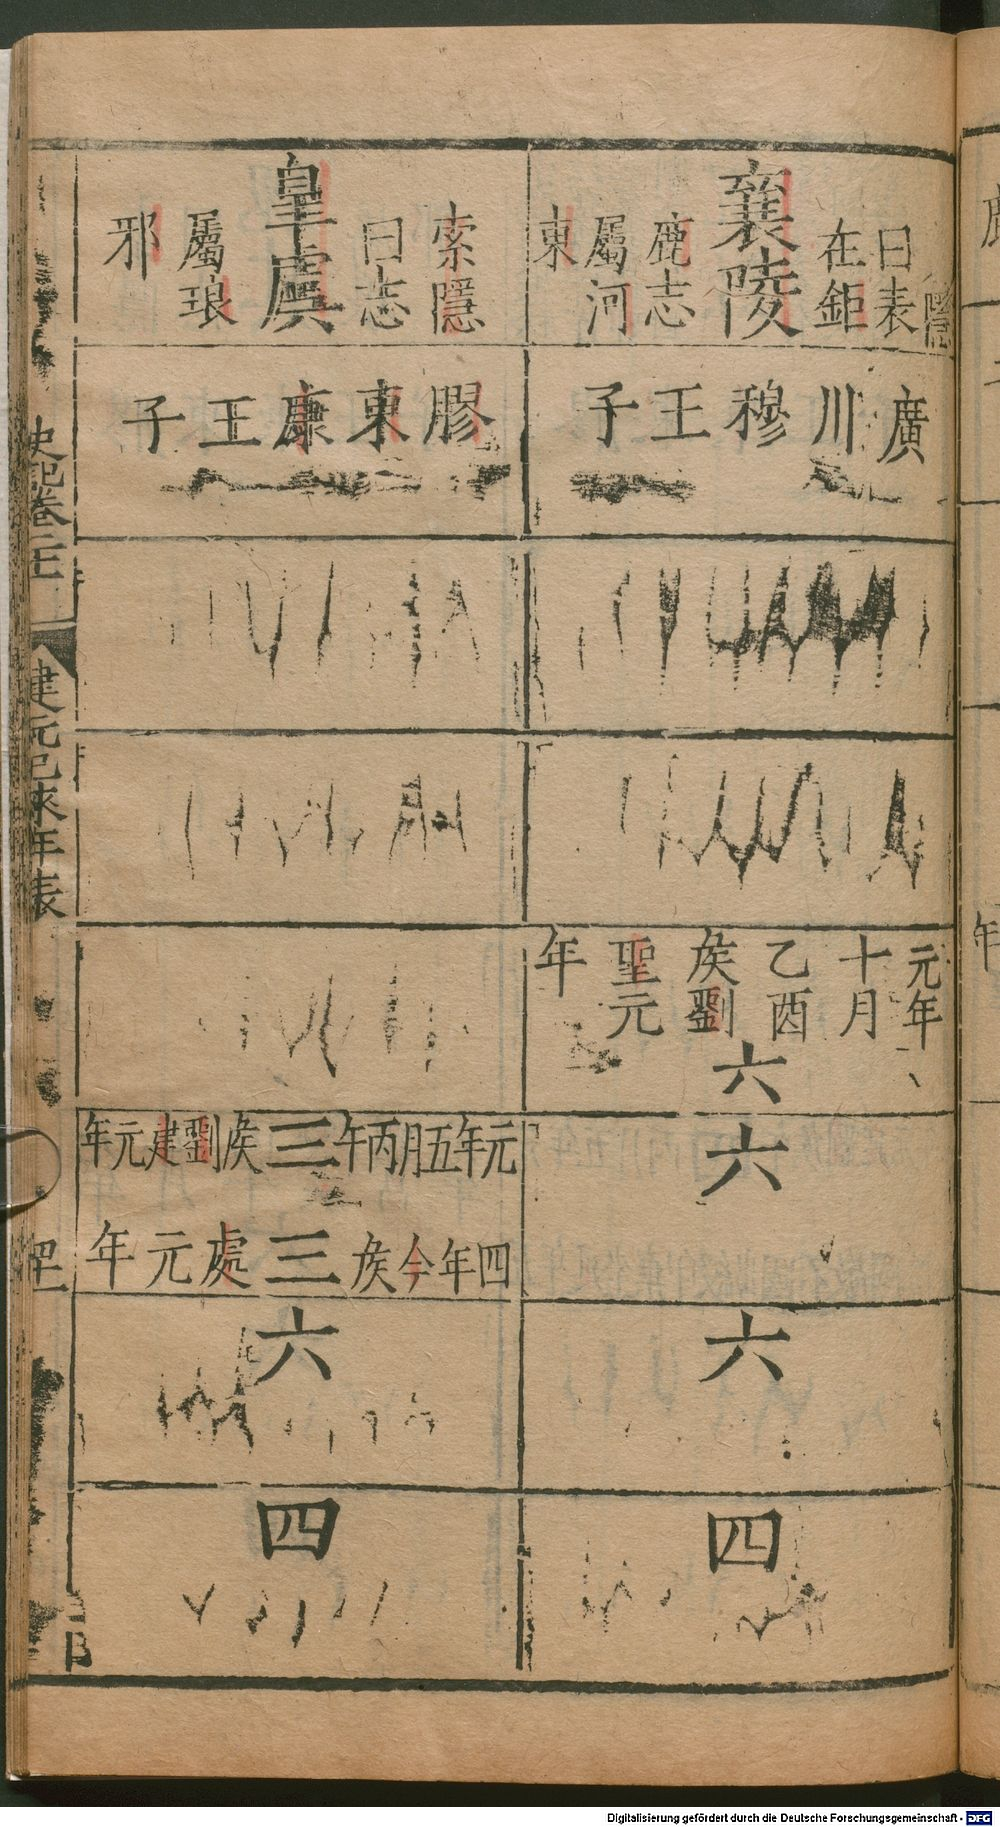 隱
曰表
在鉅
襄陵
鹿志
屬河
東
廣川穆王子
元年
十月
乙酉
矦劉
聖元
年
六
六
六
四
索隱
曰志
皇虞
屬琅
邪
膠東康王子
元年五月丙午三矦劉建元年
四年今矦三處元年
六
四
史記卷二十一
建元已來年表
Digitalisierung gefördert durch die Deutsche Forschungsgemeinschaft - DFG